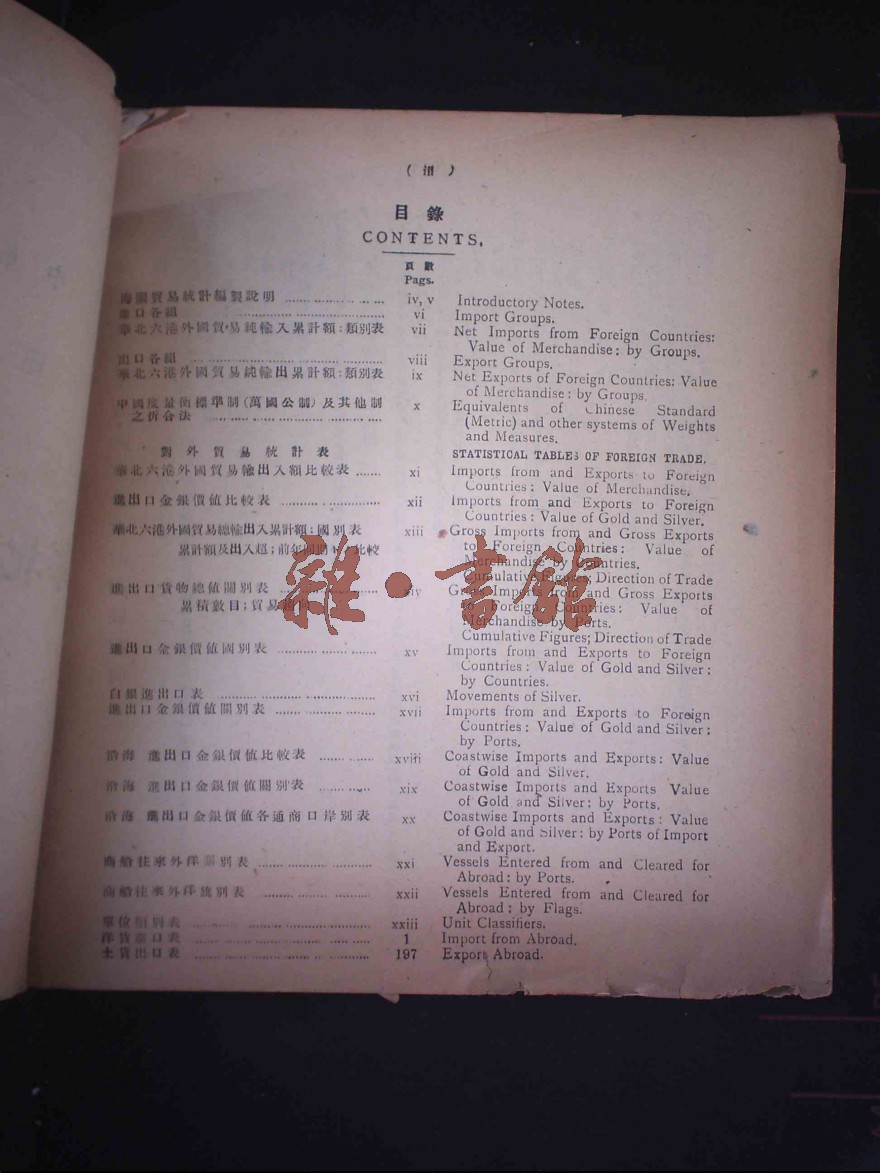 ( iii )
目錄
CONTENTS.
頁數
Pags.
海關貿易統計編製說明 iv, v Introductory Notes.
進口各組 vi Import Groups.
華北六港外國貿易純輸入累計額：類別表 vii Net Imports from Foreign Countries:
Value of Merchandise: by Groups.
出口各組 viii Export Groups.
華北六港外國貿易純輸出累計額：類別表 ix Net Exports of Foreign Countries: Value
of Merchandise: by Groups.
中國度量衡標準制(萬國公制)及其他制 x Equivalents of Chinese Standard
之折合法 (Metric) and other systems of Weights
and Measures.
對外貿易統計表 STATISTICAL TABLES OF FOREIGN TRADE.
華北六港外國貿易輸出入額比較表 xi Imports from and Exports to Foreign
Countries: Value of Merchandise.
進出口金銀價值比較表 xii Imports from and Exports to Foreign
Countries: Value of Gold and Silver.
華北六港外國貿易總輸出入累計額：國別表 xiii Gross Imports from and Gross Exports
累計額及出入超；前年同期 比較 to Foreign Countries: Value of
Merchandise by Countries.
Cumulative Figures; Direction of Trade
進出口貨物總值關別表 xiv Gross Imports from and Gross Exports
累積數目；貿易 to Foreign Countries: Value of
Merchandise by Ports.
Cumulative Figures; Direction of Trade
進出口金銀價值國別表 xv Imports from and Exports to Foreign
Countries: Value of Gold and Silver:
by Countries.
白銀進出口表 xvi Movements of Silver.
進出口金銀價值關別表 xvii Imports from and Exports to Foreign
Countries: Value of Gold and Silver:
by Ports.
沿海 進出口金銀價值比較表 xviii Coastwise Imports and Exports: Value
of Gold and Silver.
沿海 進出口金銀價值關別表 xix Coastwise Imports and Exports Value
of Gold and Silver: by Ports.
沿海 進出口金銀價值各通商口岸別表 xx Coastwise Imports and Exports: Value
of Gold and Silver: by Ports of Import
and Export.
商船往來外洋關別表 xxi Vessels Entered from and Cleared for
Abroad: by Ports.
商船往來外洋旗別表 xxii Vessels Entered from and Cleared for
Abroad: by Flags.
單位類別表 xxiii Unit Classifiers.
洋貨進口表 1 Import from Abroad.
土貨出口表 197 Export Abroad.
雜·書館